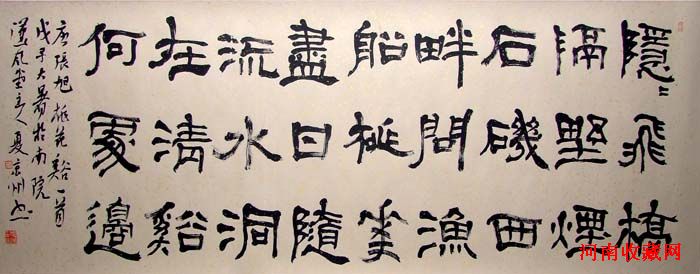 隱〻飛橋
隔野煙
石磯西
畔問漁
船桃花
盡日隨
流水洞
在清谿
何處邊
唐張旭桃花谿一首
戊子大暑於南院
漢風堂主人夏京州書
河南收藏网